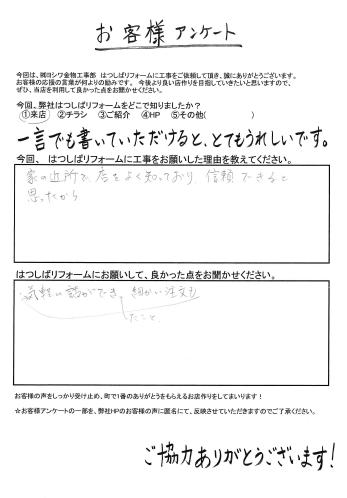 お客様アンケート
今回は、㈱ヨシワ金物工事部 はつしばリフォームに工事をご依頼して頂き、誠にありがとうございます。
お客様の応援の言葉が何よりの励みです。 今後より良い店作りを目指していきたいと思いますので、
ぜひ、当店を利用して良かった点をお聞かせください。
今回、弊社はつしばリフォームをどこで知りましたか？
①来店 ②チラシ ③ご紹介 ④HP ⑤その他( )
一言でも書いていただけると、とてもうれしいです。
今回、 はつしばリフォームに工事をお願いした理由を教えてください。
家の近所で店をよく知っており、信頼できると
思ったから
はつしばリフォームにお願いして、良かった点をお聞かせください。
気軽に話ができ、細かい注文も
したこと。
お客様の声をしっかり受け止め、町で1番のありがとうをもらえるお店作りをしてまいります！
☆お客様アンケートの一部を、弊社HPのお客様の声に匿名にて、反映させていただきますのでご了承ください。
ご協力ありがとうございます!